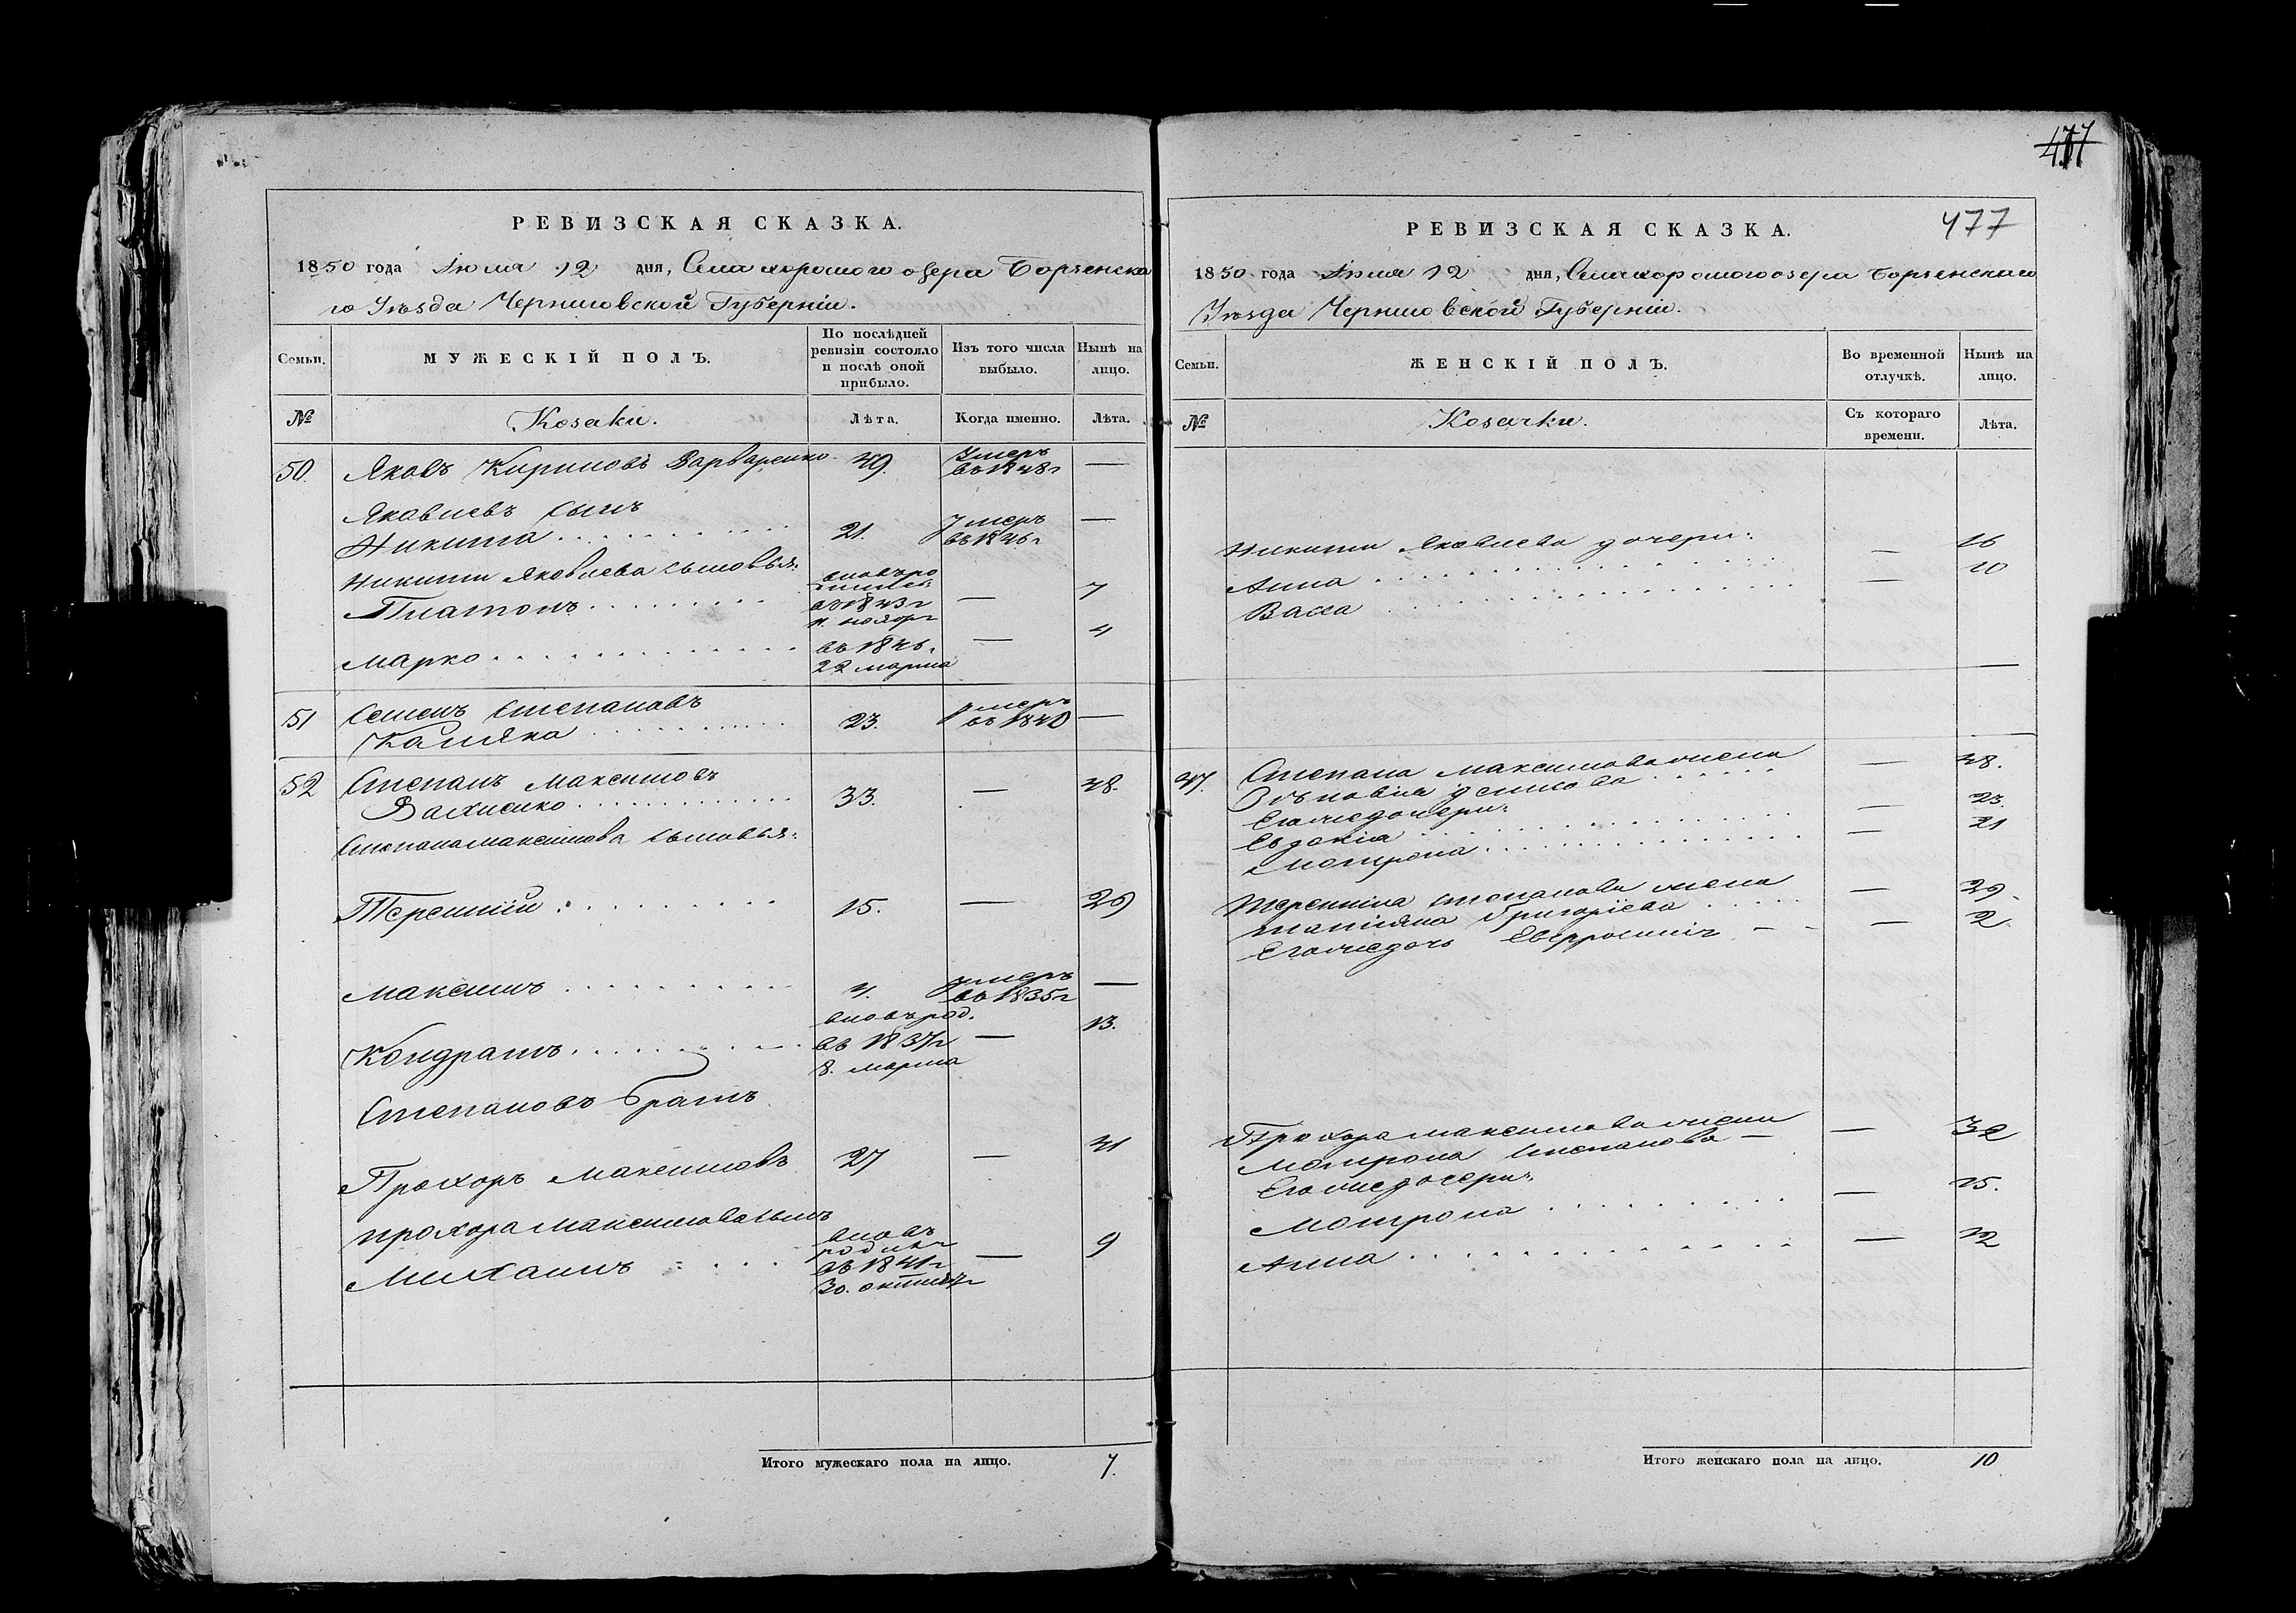 РЕВИЗСКАЯ СКАЗКА.
1850 года Июля 12 дня, Села хорошого озера Борзенска
го Уѣзда Черниговской Губерніи.
Семьи.
МУЖЕСКІЙ ПОЛЪ.
По послѣдней ревизіи состояло и послѣ оной прибыло.
Изъ того числа выбыло.
Нынѣ на лицо.
№
Козаки.
Лѣта.
Когда именно.
Лѣта.
50. Яковъ Кириловъ Варваренко 49. Умеръ въ 1848 г —
Яковлевъ сынъ
Никита 21. Умеръ въ 1846 г —
Никиты Яковлева сыновья:
Платонъ въ 1843 г — 7
Марко въ 1846. 22 марта — 4
51 Семенъ Степановъ
Каляка 23. умеръ въ 1840 —
52 Степанъ Максимовъ
33. — 48.
Степана Максимова сыновья:
Терентій 15. — 29
Максимъ 4. умеръ въ 1835 г —
Кондратъ вновь род. въ 1837 г 8. марта — 13.
Степановъ братъ
Прохоръ Максимовъ 27 — 41
Прохора Максимова сынъ
Михаилъ вновь въ 1841 г 30. — 9
Итого мужескаго пола на лицо. 7.
477
477
РЕВИЗСКАЯ СКАЗКА.
1850 года Июля 12 дня, Села хорошого озера Борзенскаго
Уѣзда Черниговской Губерніи.
Семьи.
ЖЕНСКІЙ ПОЛЪ.
Во временной отлучкѣ.
Нынѣ на лицо.
№
Козачки.
Съ котораго времени.
Лѣта.
Никиты Яковлева дочери:
Анна — 16
Васса — 10
47. Степана Максимова жена
— 48.
Егожедочери:
Евдокія — 23.
Мотрона — 21
Терентія Степанова жена
Татіяна Григоріева — 29.
Егоже дочь — 2
Прохора Максимова жена
Мотрона Степанова — 32
Егоже дочери:
Мотрона — 15.
Анна — 12
Итого женскаго пола на лицо. 10